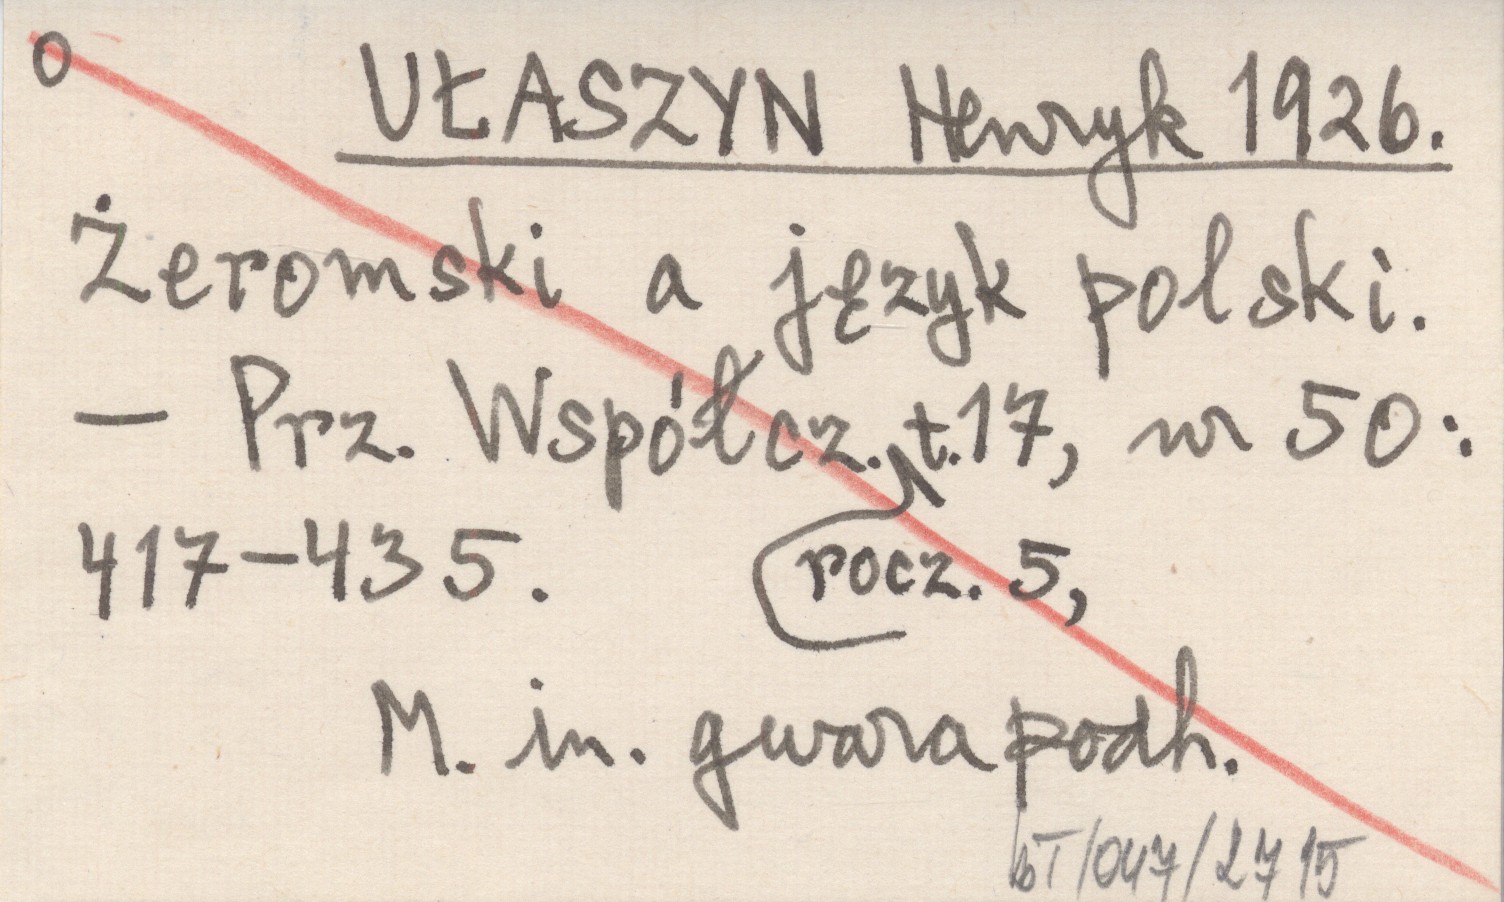 o UŁASZYN Henryk 1926.
Żeromski a język polski.
— Prz. Współcz. t.17, nr 50:
417-435. rocz. 5,
M. in. gwara podh.
bT/047/2715